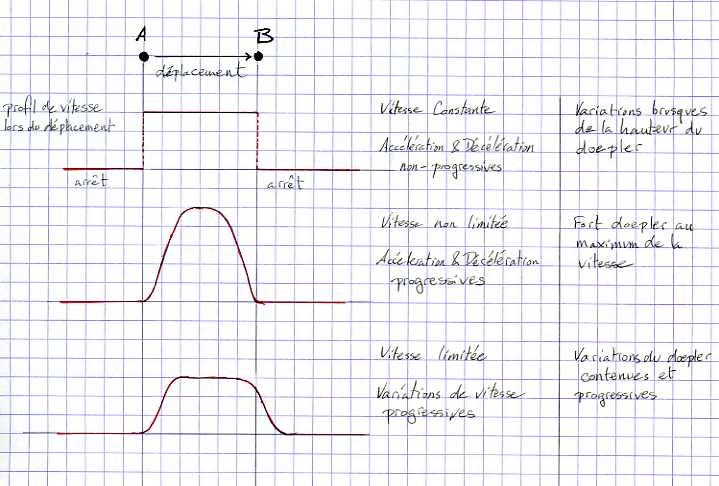 A
B
déplacement
profil de vitesse
lors du déplacement
arrêt
arrêt
Vitesse Constante
Accélération & Décélération
non-progressives
Variations brusques
de la hauteur du
doepler
Vitesse non limitée
Accéleration & Décélération
progressives
Fort doepler au
maximum de la
vitesse
Vitesse limitée
Variations de vitesse
progressives
Variations du doepler
contenues et
progressives